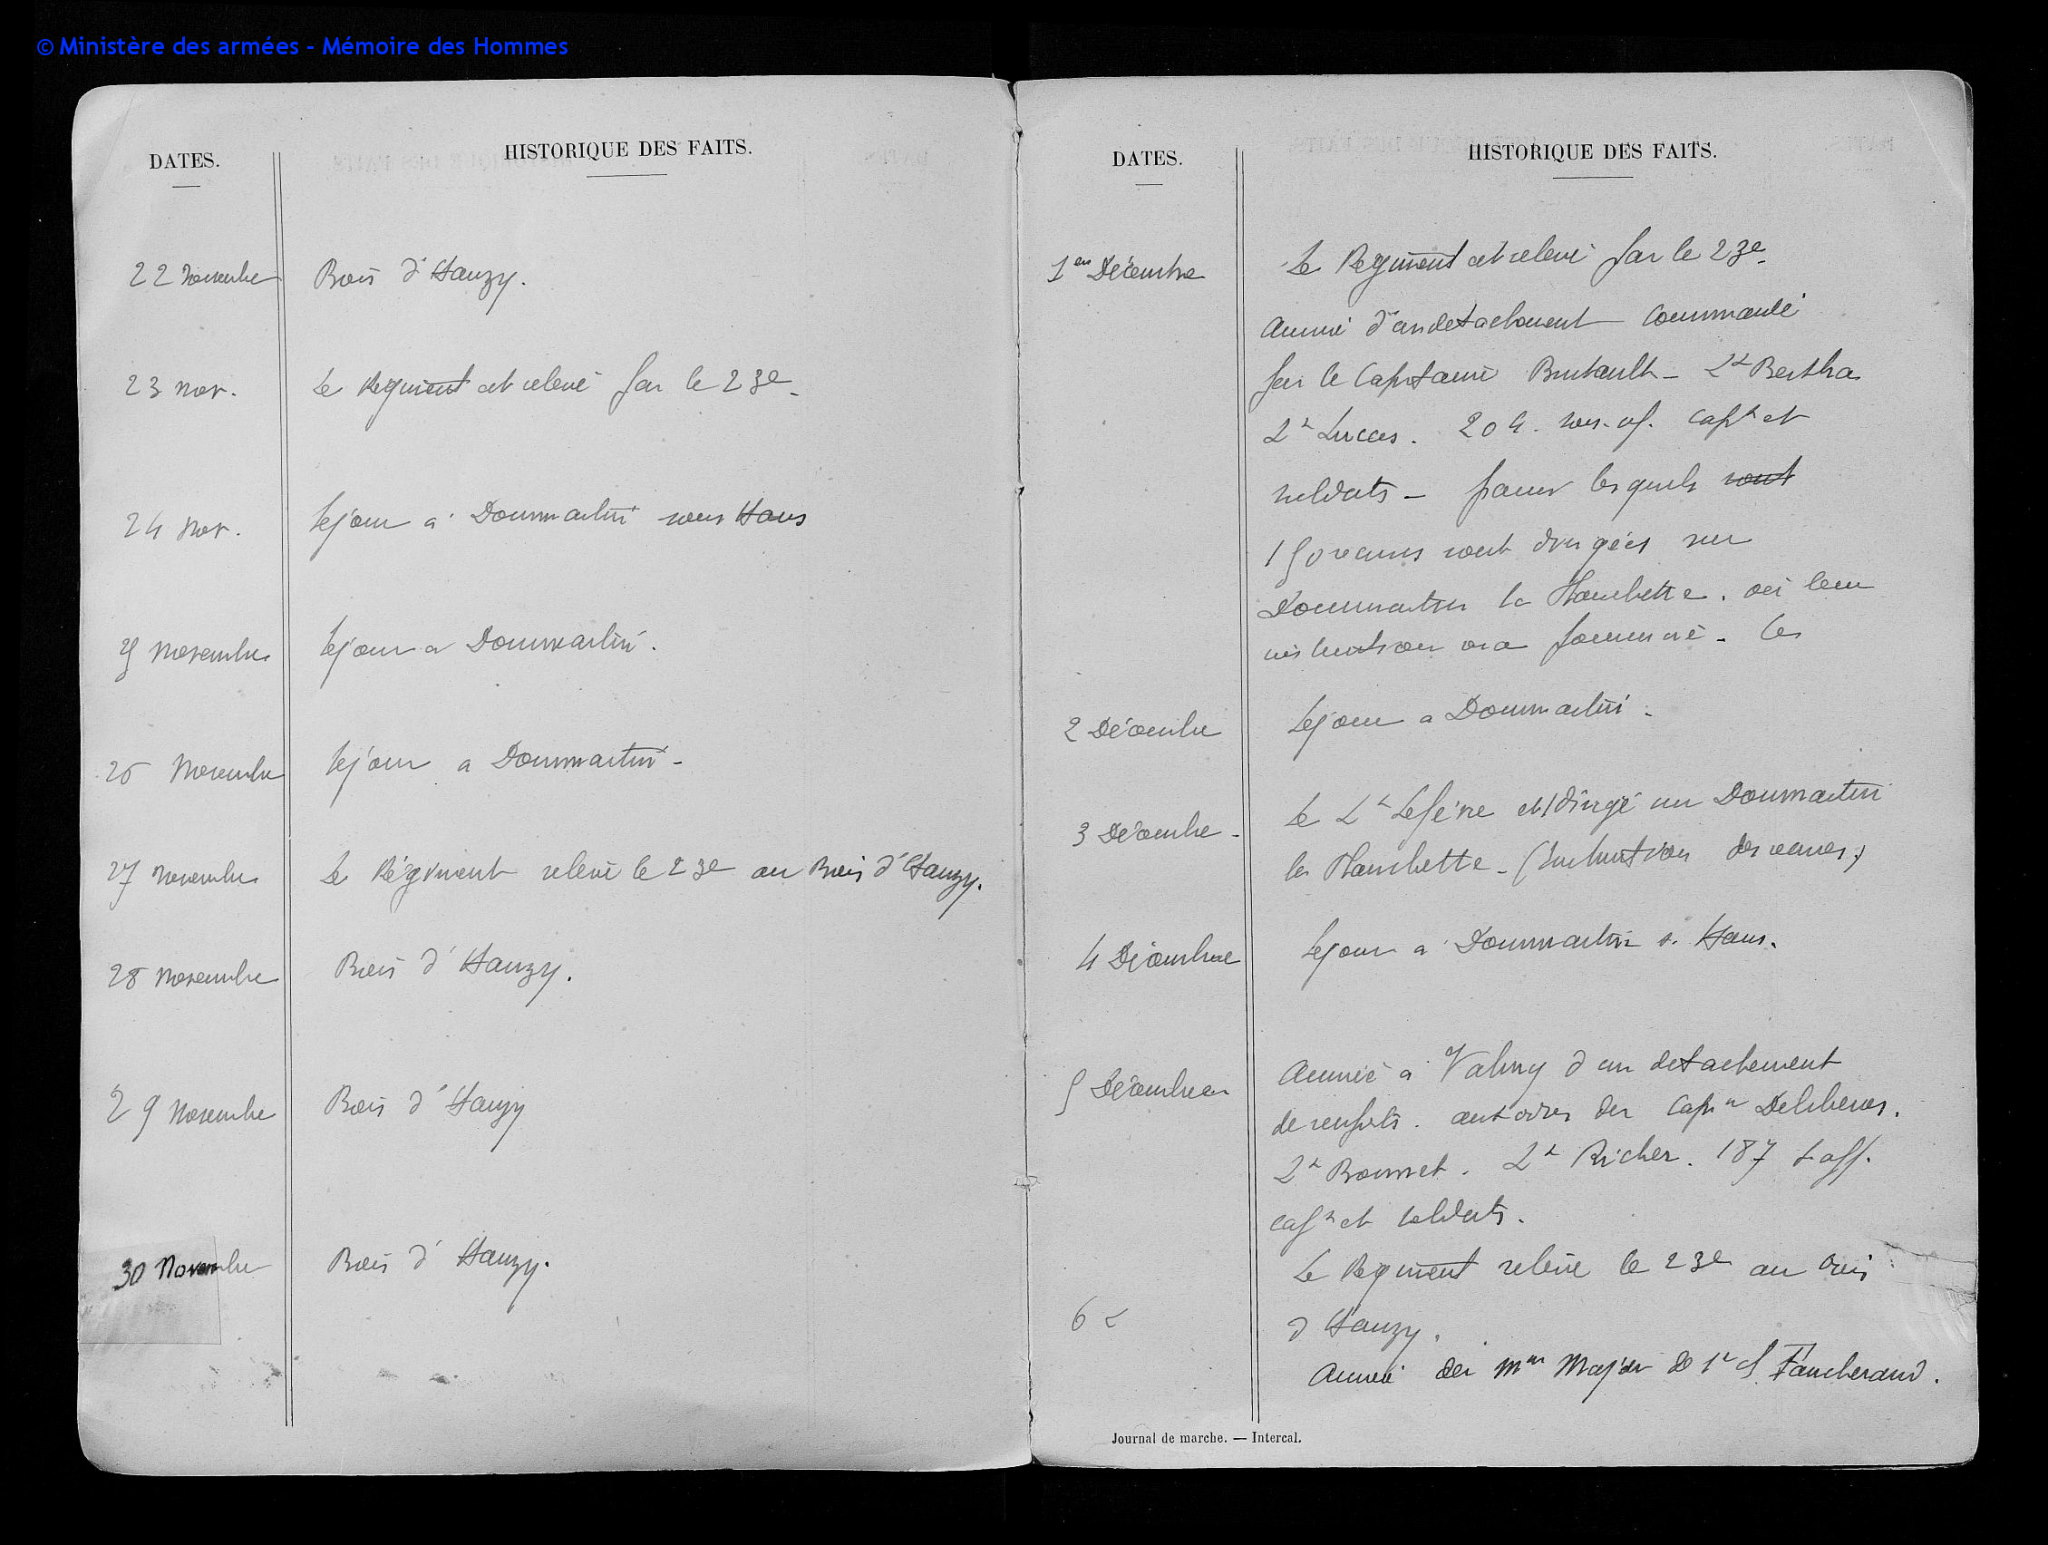 © Ministère des armées - Mémoire des Hommes
DATES.
HISTORIQUE DES FAITS.
22 Novembre Bois d'Hauzy.
23 Nov. Le Régiment est relevé par le 23e.
24 Nov. Séjour à Dommartin sous Hans
25 Novembre Séjour a Dommartin.
26 Novembre Séjour a Dommartin.
27 Novembre Le Régiment relève le 23e au Bois d'Hauzy.
28 Novembre Bois d'Hauzy.
29 Novembre Bois d'Hauzy
30 Novembre Bois d'Hauzy.
DATES.
HISTORIQUE DES FAITS.
1er Décembre Le Régiment est relevé par le 23e.
Arrivée d'un détachement commandé
par le Capitaine Lt Bertha
Lt Lucas. 204 sous-of. capx et
soldats - parmi lesquels sont
150 recrues sont dirigées sur
Dommartin la Planchette. où leur
instruction sera
2 Décembre Séjour a Dommartin.
3 Décembre - Le Lt Lefèvre est dirigé sur Dommartin
la Planchette - (Instruction des recrues.)
4 Décembre Séjour a Dommartin s. Hans.
5 Décembre Arrivée à Valmy d'un détachement
de renforts. aux ordres du Capne
Lt Bonnet. Lt Richer. 187 s/off.
capx et soldats.
Le Régiment relève le 23e au Bois
6 d'Hauzy.
Arrivée du Min Major de 1e cl
Journal de marche. — Intercal.